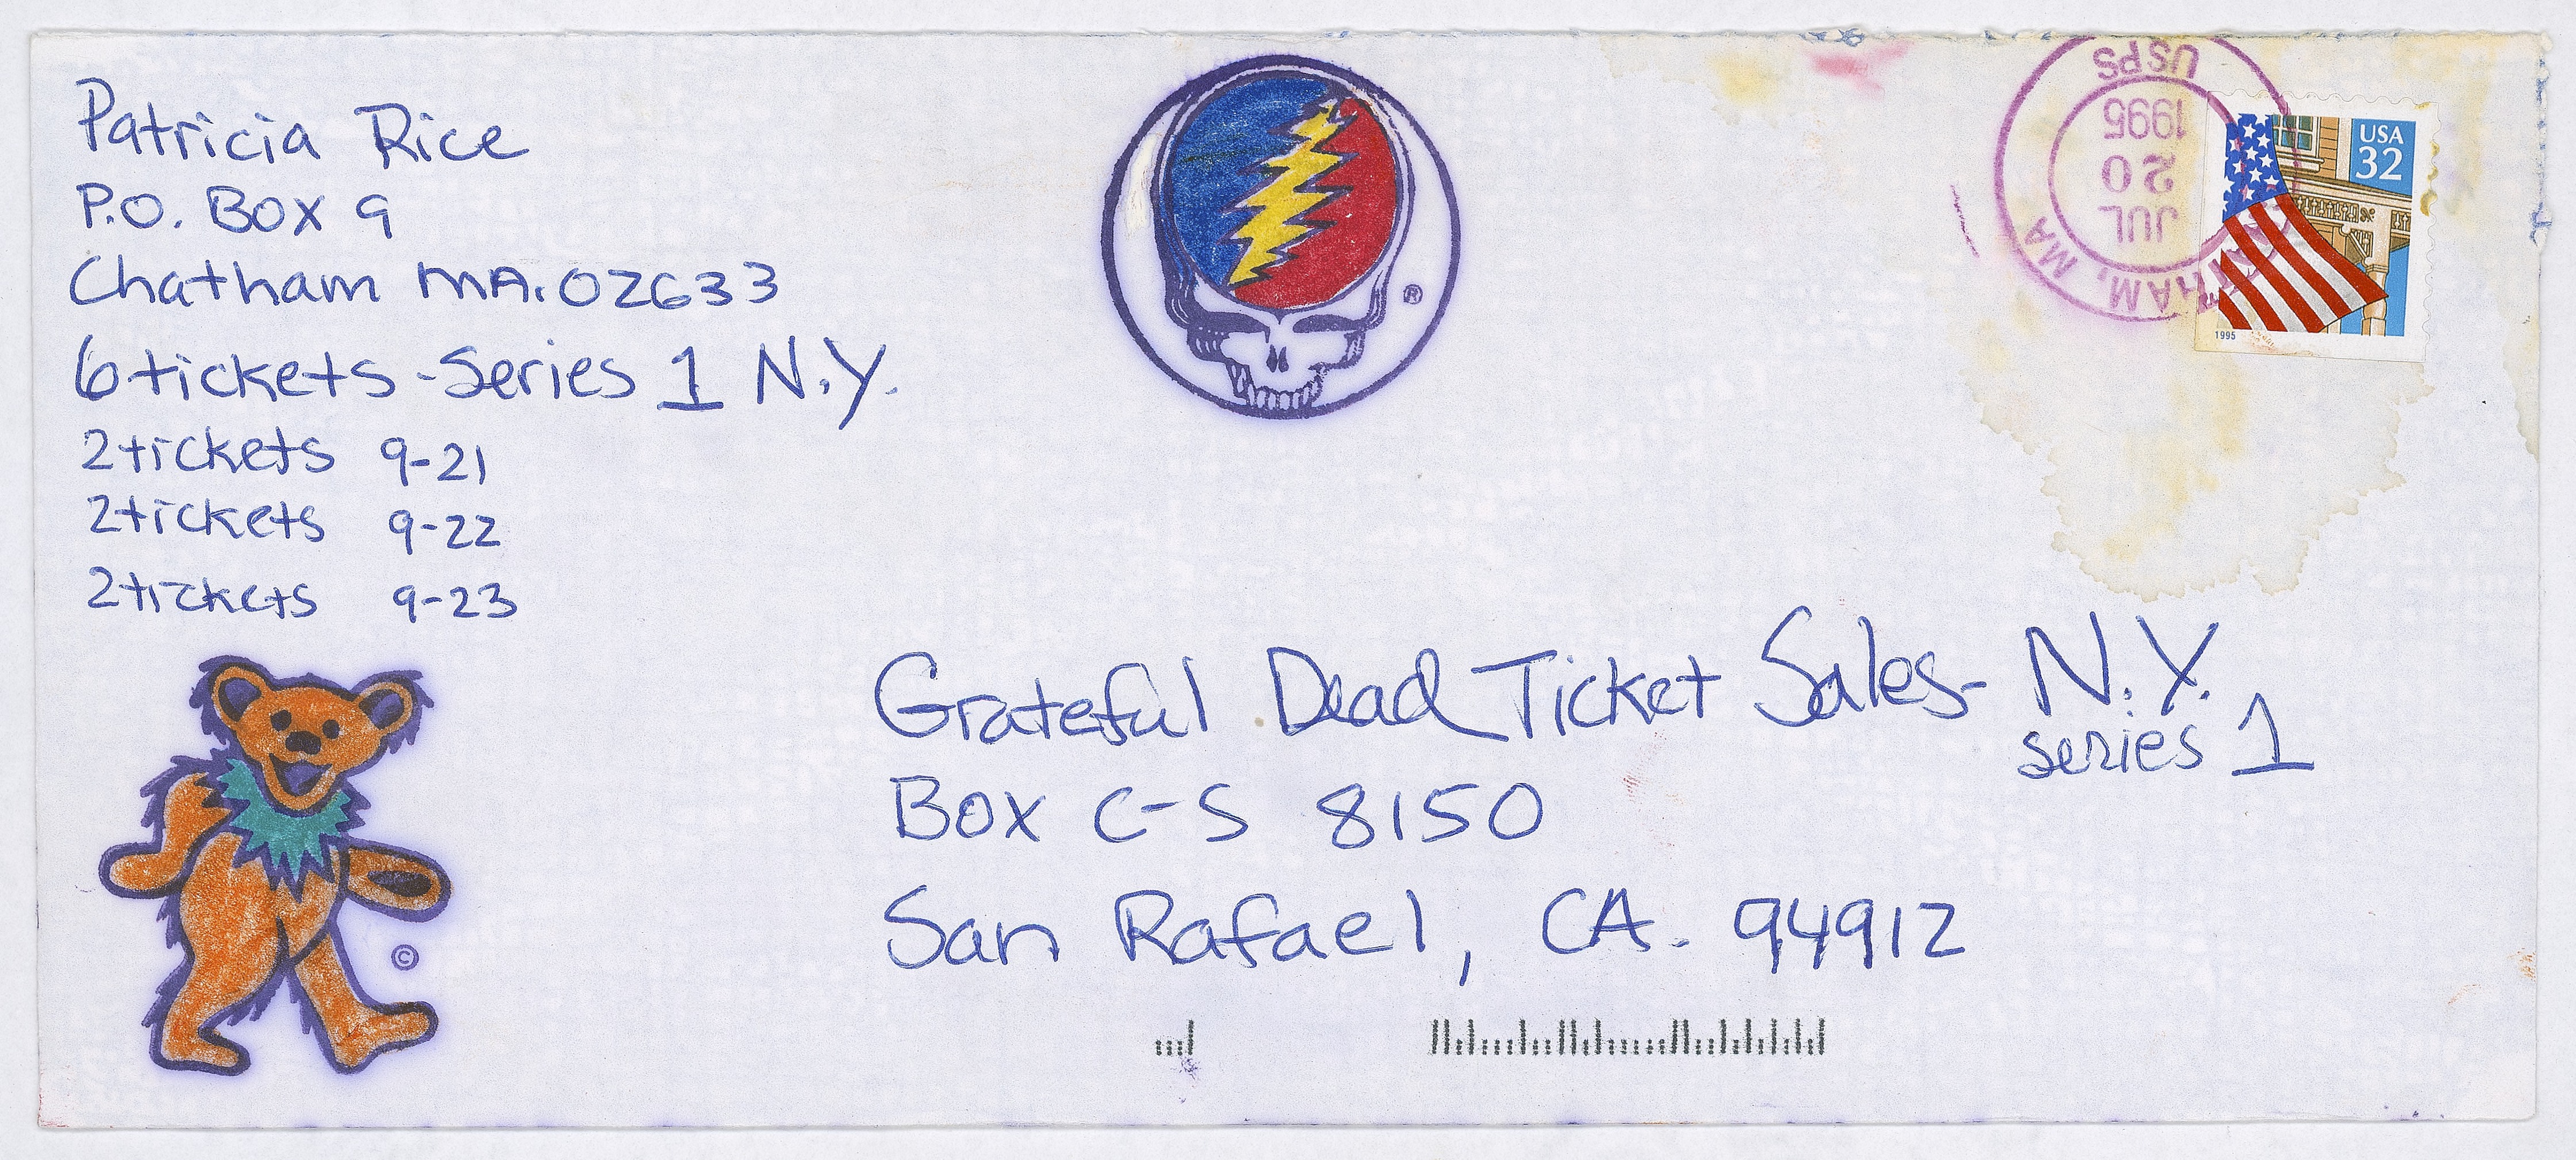 Patricia Rice
P.O. Box 9
Chatham MA. 02633
6 tickets - Series 1 N.Y.
2 tickets 9-21
2 tickets 9-22
2 tickets 9-23
®
USPS
1995
20
JUL
CHATHAM, MA
USA
32
1995
Grateful Dead Ticket Sales - N.Y.
series 1
Box C-S 8150
San Rafael, CA. 94912
©